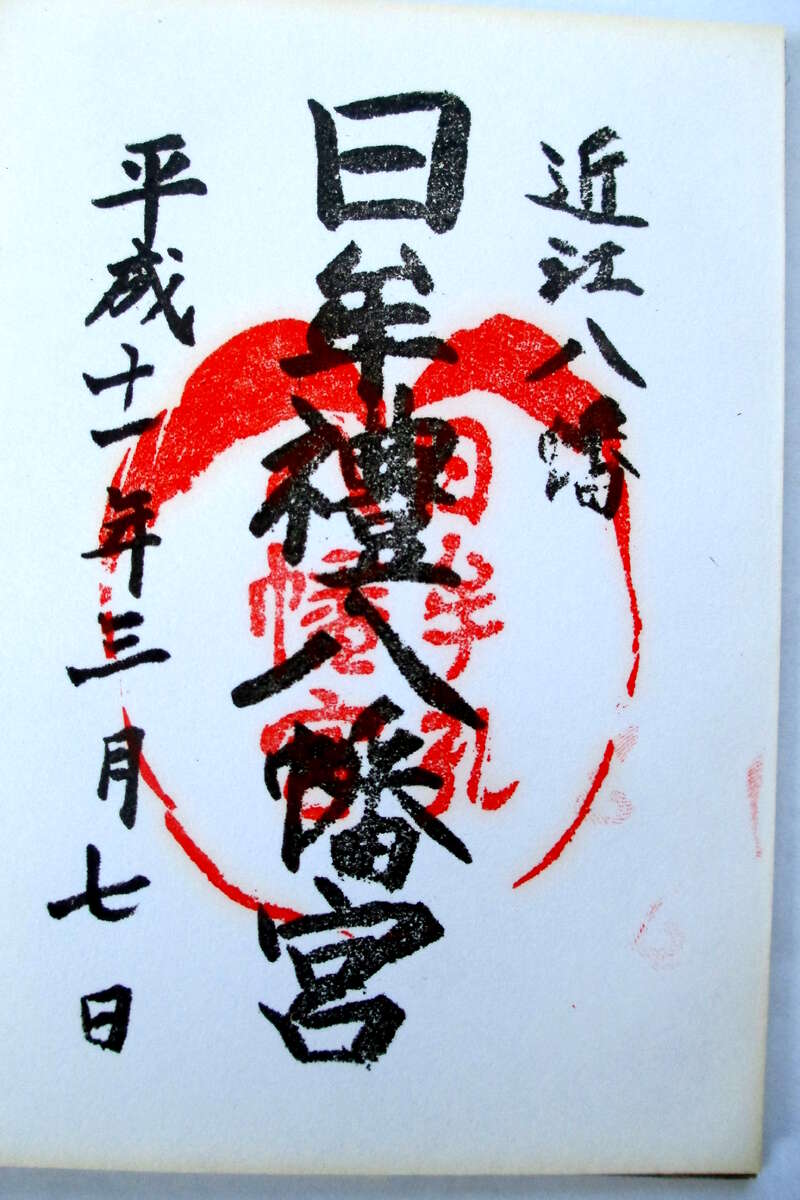 近江八幡
日牟禮八幡宮
日牟礼
八幡宮
平成十一年三月七日